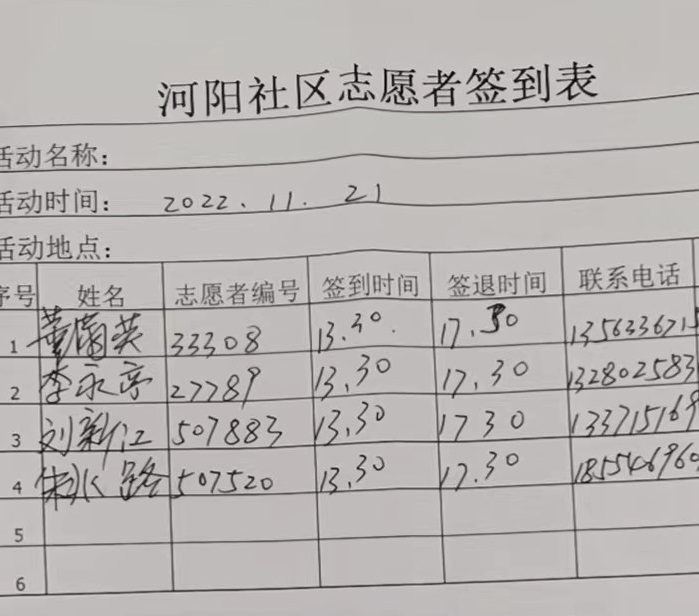 河阳社区志愿者签到表
活动名称：
活动时间： 2022.11.21
活动地点：
序号 姓名 志愿者编号 签到时间 签退时间 联系电话
1 董富英 33308 13.30. 17.30 135633671
2 李永亭 27789 13.30 17.30 132802583
3 刘新江 507883 13.30 1730 133715169
4 朱 路 507520 13.30 17.30 185540696
5
6